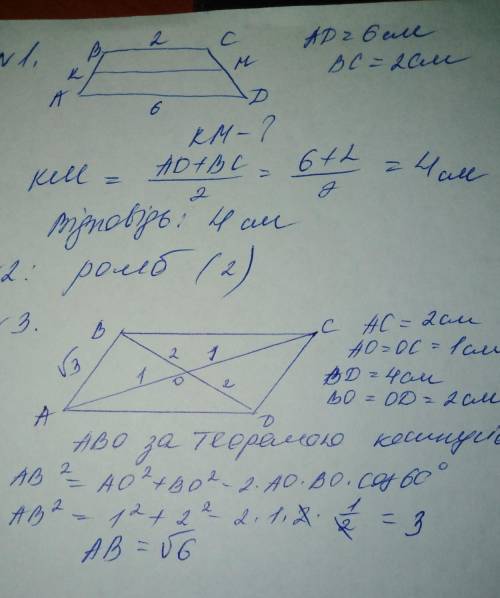 №1. B 2 C AD = 6 см
K M BC = 2 см
A 6 D
KM - ?
KM = (AD+BC)/2 = (6+2)/2 = 4 см
Відповідь: 4 см
2: ромб (2)
3.
B C AC = 2 см
√3 2 1 AO = OC = 1 см
1 O 2 BD = 4 см
A D BO = OD = 2 см
ABO за теоремою косинусів
AB² = AO² + BO² - 2·AO·BO·cos60°
AB² = 1² + 2² - 2·1·2·1/2 = 3
AB = √6